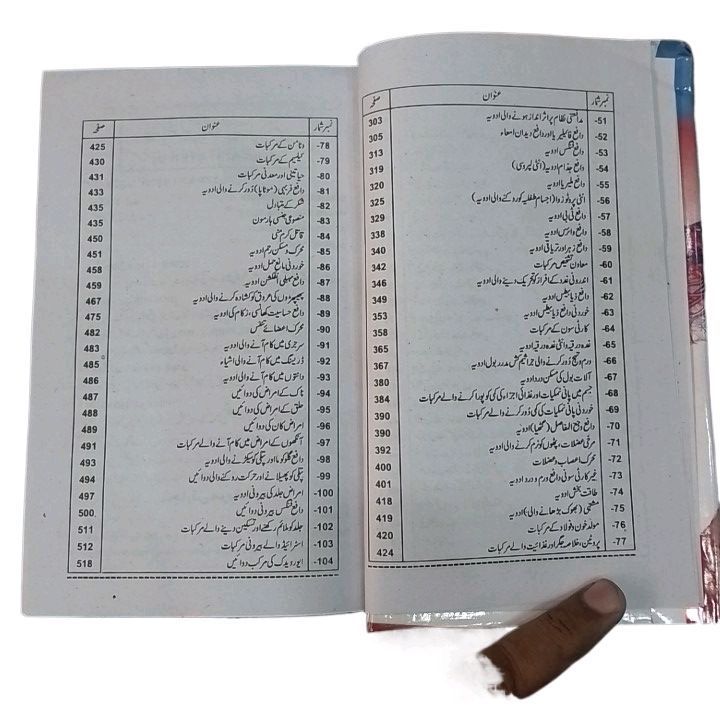 نمبر شمار عنوان صفحہ
51- مدافعتی نظام پر اثر انداز ہونے والی ادویہ 303
52- دافع فائلیریا اور دافع دیدان امعاء 305
53- دافع فنگس ادویہ 313
54- دافع جذام ادویہ (انٹی لپروسی) 319
55- دافع ملیریا ادویہ 320
56- انٹی پروٹوزوا (اجسام طفیلیہ کو روکنے والی ادویہ) 325
57- دافع ٹی بی ادویہ 329
58- دافع وائرس ادویہ 338
59- دافع زہر اور تریاقی ادویہ 340
60- معاون تشخیص مرکبات 342
61- اندرونی غدد کے افراز کو تحریک دینے والی ادویہ 346
62- دافع ذیابیطس ادویہ 349
63- خوردنی دافع ذیابیطس ادویہ 353
64- کارٹی سون کے مرکبات 358
65- غدہ درقیہ و انٹی غدہ درقیہ ادویہ 365
66- ورم و تہیج دُور کرنے والی جراثیم کش مدر بول ادویہ 367
67- آلات بول کی مسکن درد ادویہ 380
68- جسم میں پانی نمکیات اور غذائی اجزاء کی کمی کو پورا کرنے والے مرکبات 384
69- خوردنی پانی نمکیات کی کمی دُور کرنے والے مرکبات 390
70- دافع وجع المفاصل (گنٹھیا) ادویہ 390
71- مرخی عضلات، پٹھوں کو نرم کرنے والی ادویہ 392
72- محرک اعصاب و عضلات 400
73- غیر کارٹی سونی دافع ورم و درد ادویہ 401
74- طاقت بخش ادویہ 418
75- مشتہی (بھوک بڑھانے والی) ادویہ 419
76- مولد خون و فولاد کے مرکبات 420
77- پروٹین، خلاصہ جگر اور غذائیت والے مرکبات 424
نمبر شمار عنوان صفحہ
78- وٹامن کے مرکبات 425
79- کیلشیم کے مرکبات 430
80- حیاتینی اور معدنی مرکبات 431
81- دافع فربہی (موٹاپا) دُور کرنے والی ادویہ 433
82- شکر کے متبادل 435
83- مخصوص جنسی ہارمون 435
84- قاتل کرم منی 450
85- محرک و مسکن رحم ادویہ 451
86- خوردنی مانع حمل ادویہ 458
87- دافع مہبلی انفکشن ادویہ 459
88- پھیپھڑوں کی عروق کو کشادہ کرنے والی ادویہ 467
89- دافع حساسیت کھانسی، زکام کی ادویہ 475
90- محرک اعضائے تنفس 482
91- سرجری میں کام آنے والی ادویہ 483
92- ڈریسنگ میں کام آنے والی اشیاء 485
93- دانتوں میں کام آنے والی ادویہ 486
94- ناک کے امراض کی دوائیں 487
95- حلق کے امراض کی دوائیں 488
96- امراض کان کی دوائیں 489
97- آنکھوں کے امراض میں کام آنے والے مرکبات 491
98- دافع گلوکوما اور پتلی کو سکیڑنے والی ادویہ 493
99- پتلی کو پھیلانے اور حرکت روکنے والی دوائیں 494
100- امراض جلد کی بیرونی ادویہ 497
101- دافع فنگس بیرونی دوائیں 500
102- جلد کو ملائم رکھنے اور تسکین دینے والے مرکبات 511
103- اسٹرائیڈ والے بیرونی مرکبات 512
104- ایورویدک کی مرکب دوائیں 518